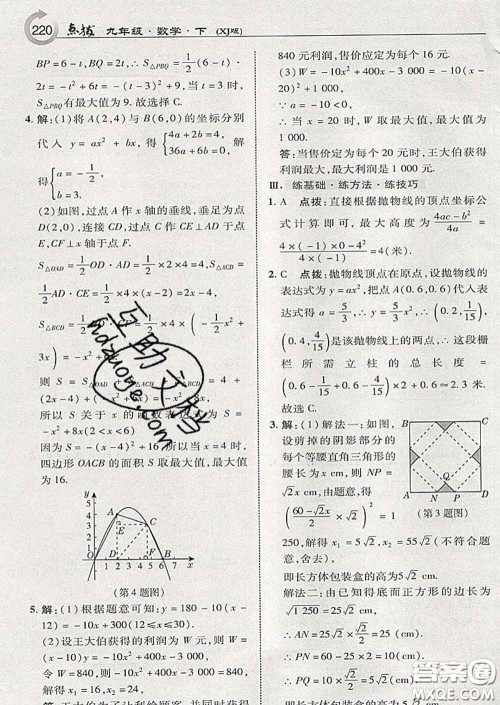 220 点拨 九年级·数学·下 (XJ版)
BP=6-t, BQ=2t, ∴S△PBQ=1/2(6-t)·
2t=-t²+6t=-(t-3)²+9, ∴△PBQ
的面积有最大值为9.故选择C.
4. 解:(1)将A(2,4)与B(6,0)的坐标分别
代入 y=ax²+bx, 得 {4a+2b=4, 36a+6b=0, 解
得 {a=-1/2, b=3.
(2)如图,过点A作x轴的垂线,垂足为点
D(2,0),连接CD,过点C作CE⊥AD于点
E,CF⊥x轴于点F,
S△OAD=1/2OD·AD=1/2×2×4=4,S△ACD=
1/2AD·CE=1/2×4×(x-2)=2x-4,
S△BCD=1/2BD·
3x)=-x²+6x,
则 S=S△OAD+S△ACD
所以 S 关于 x 的函数表达式为
-x²+8x(2<x<6)
因为 S=-(x-4)²+16,所以当x=4时,
四边形OACB的面积S取最大值,最大值
为16.
y
6
5
4
3
2
1
A
E
C
D
F
B
O 1 2 3 4 5 6 x
(第4题图)
5. 解:(1)根据题意可知:y=180-10(x-
12)=-10x+300(12≤x≤30).
(2)设王大伯获得的利润为W元,则W=
(x-10)y=-10x²+400x-3 000,
令W=840,则-10x²+400x-3 000=840,
解得x₁=16,x₂=24.
答:王大伯为了让利给顾客,并获得利润
840元利润,售价应定为每个16元.
(3)∵W=-10x²+400x-3 000=
-10(x-20)²+1 000,
∵a=-10<0,
∴当 x=20 时, W 取最大值,最大值为
1 000.
答:当售价定为每个20元时,王大伯获得
利润最大,最大利润是1 000元.
Ⅲ. 练基础·练方法·练技巧
1. A 点拨:直接根据抛物线的顶点坐标公
式计算即可,最大高度为(4ac-b²)/4a=
(4×(-1)×0-4²)/(4×(-1))=4(米).
2. C 点拨:抛物线顶点在原点,设抛物线的
表达式为y=ax²,把点A(0.6,0.6)代入表
达式得,a=5/3,∴y=5/3x²,∵(0.2,1/15),
(0.4,4/15)是该抛物线上的两点,∴这段栅
栏所需立柱的总长度=
(0.6-4/15)×2+(0.6-1/15)×2+0.6≈2.3米.
故选C.
3. 解:(1)解法一:如图,
设剪掉的阴影部分的
每个等腰直角三角形的
腰长为x cm,则NP=
√2x cm,由题意,得
((60-√2x)/2×√2)²=1
A N P D
(第3题图)
250,解得x₁=5√2,x₂=55√2(不符合题
意,舍去),
即长方体包装盒的高为5√2 cm.
解法二:由已知得底面正方形的边长为
√1 250=25√2(cm),
∴AN=25√2×√2/2=25(cm),
∴PN=60-25×2=10(cm).
∴PQ=10×√2/2=5√2(cm).
即长方体包装盒的高为5√2 cm.
互助文档
hdzuone.com
答案圈
MXQE.COM